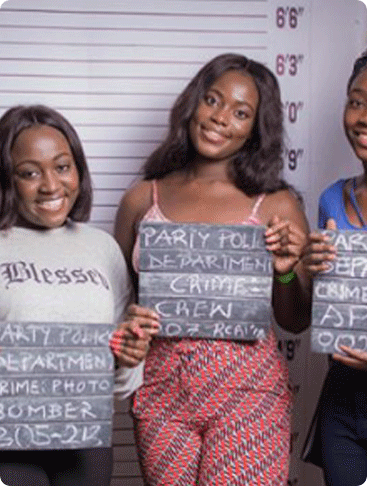 6'6"
6'3"
6'0"
5'9"
Blessed
PARTY POLIC
DEPARTMENT
CRIME: PHOTO
BOMBER
305-212
PARTY POLI
DEPARTMENT
CRIME:
CREW
PARTY
DEPA
CRIME